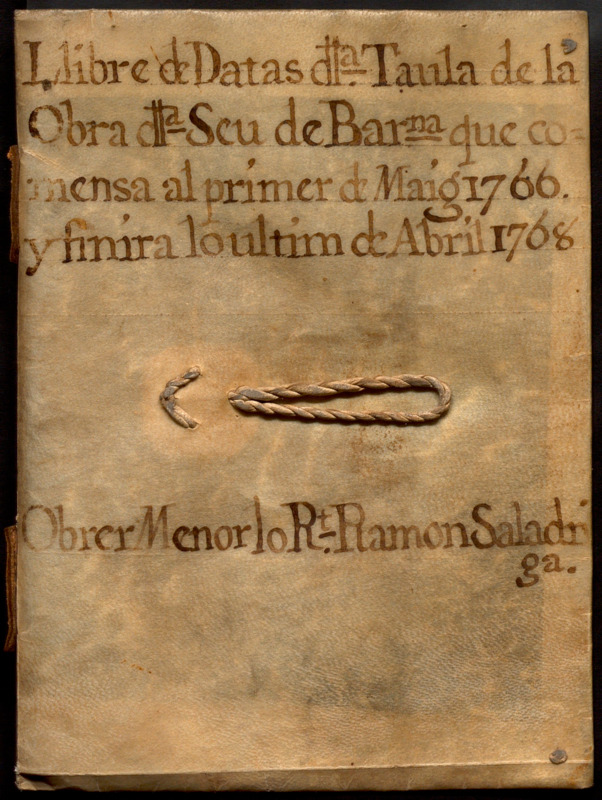 Llibre de Datas dtta. Taula de la
Obra dtta Seu de Barna que co=
mensa al primer de Maig 1766.
y finira lo ultim de Abril 1768
Obrer Menor lo Rt. Ramon Saladri
ga.